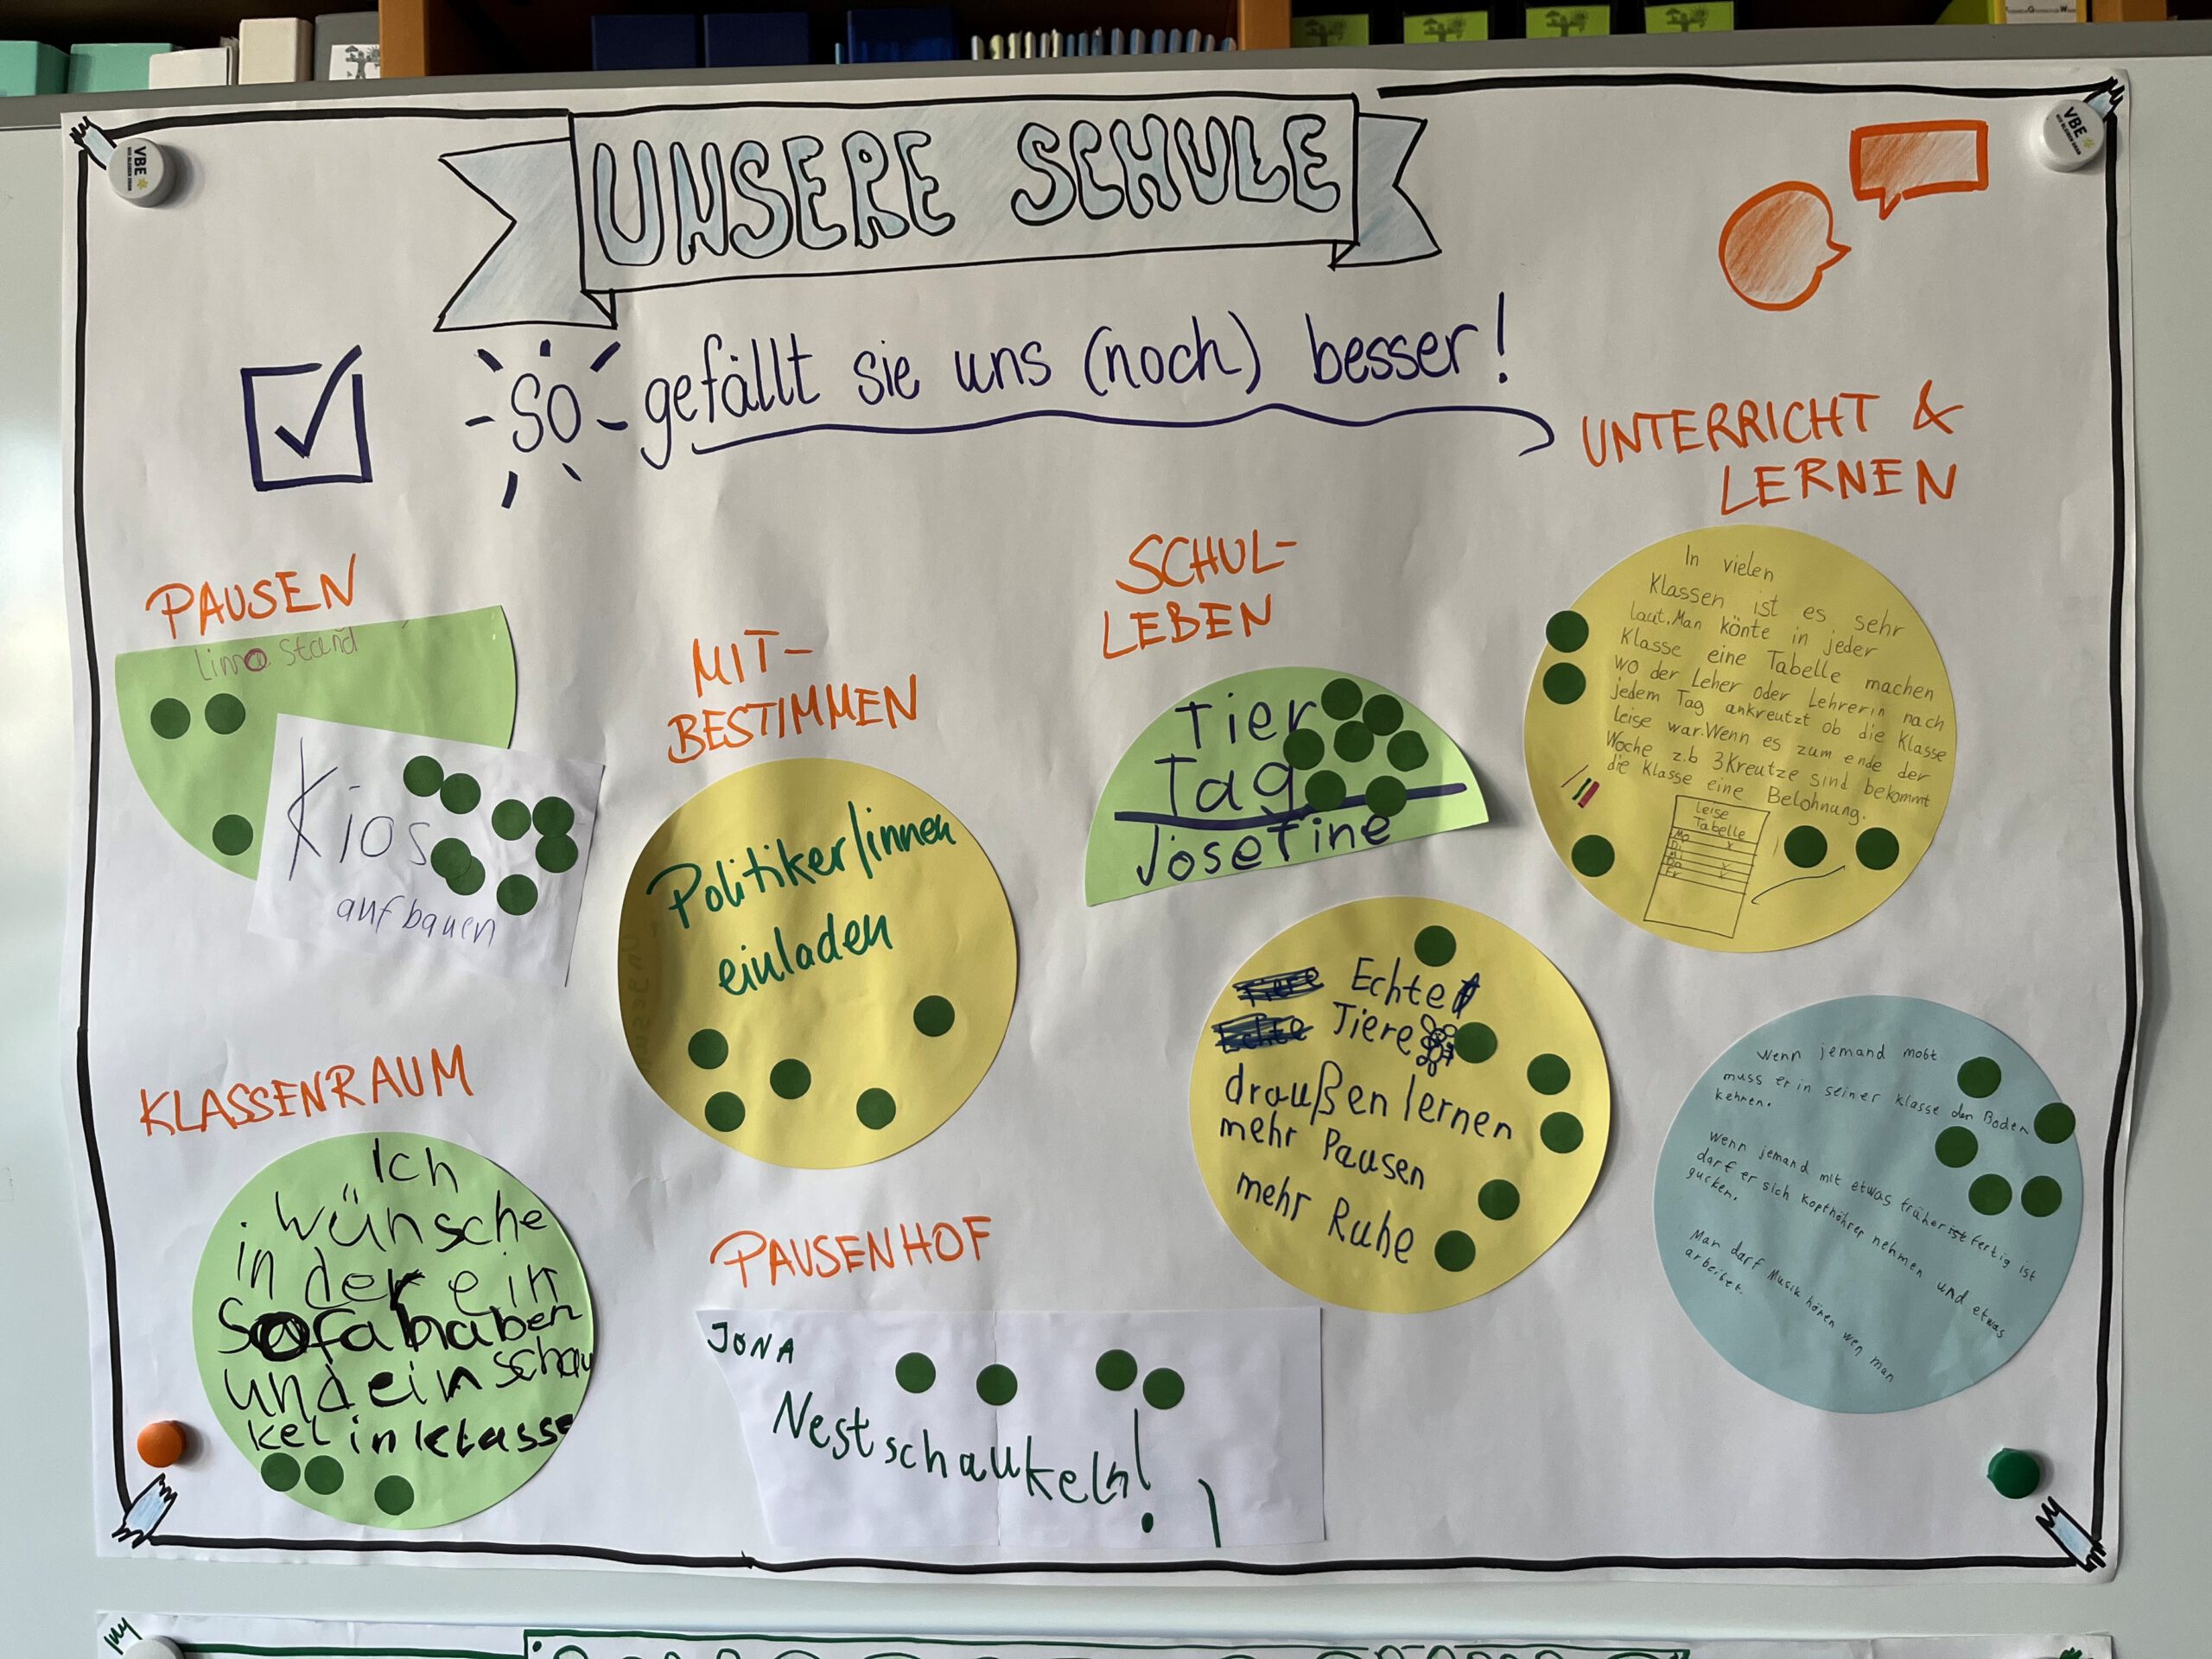 UNSERE SCHULE
SO gefällt sie uns (noch) besser!
VBE
VBE
PAUSEN
limo Stand
Kios
aufbauen
MIT-
BESTIMMEN
Politiker/innen
einladen
SCHUL-
LEBEN
Tier
Tag
Josefine
Echte
Tiere
draußen lernen
mehr Pausen
mehr Ruhe
UNTERRICHT &
LERNEN
In vielen
Klassen ist es sehr
laut. Man könte in jeder
Klasse eine Tabelle machen
wo der Leher oder Lehrerin nach
jedem Tag ankreutzt ob die Klasse
leise war. Wenn es zum ende der
Woche z.b 3 Kreutze sind bekommt
die Klasse eine Belohnung.
Leise
Tabelle
Mo x
Di
Mi
Do x
Fr x
Wenn jemand mobt
muss er in seiner klasse den Boden
kehren.
Wenn jemand mit etwas früher fertig ist
darf er sich kopfhöhrer nehmen und etwas
gucken.
Man darf Musik hören wen man
arbeitet.
KLASSENRAUM
Ich
wünsche
in der ein
Sofa haben
und ein schau
kel in klasse
PAUSENHOF
JONA
Nestschaukeln!